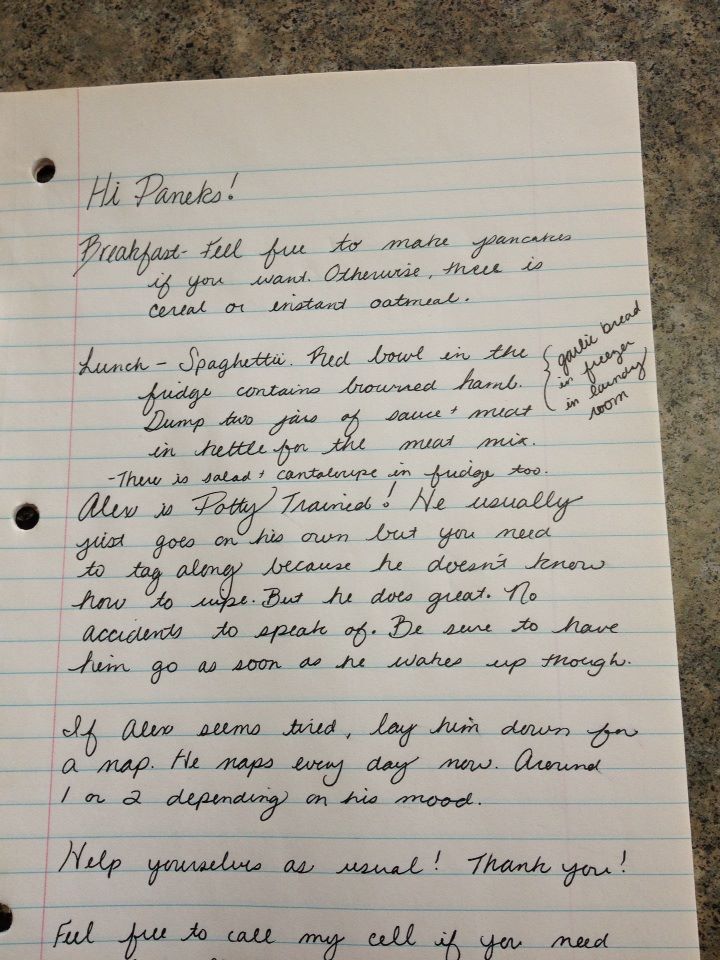 Hi Paneks!
Breakfast- Feel free to make pancakes
if you want. Otherwise, there is
cereal or instant oatmeal.
Lunch - Spaghettii. Red bowl in the
fridge contains browned hamb.
Dump two jars of sauce + meat
in kettle for the meat mix.
garlic bread
in freezer
in laundry
room
- There is salad + cantaloupe in fridge too.
Alex is Potty Trained! He usually
just goes on his own but you need
to tag along because he doesn't know
how to wipe. But he does great. No
accidents to speak of. Be sure to have
him go as soon as he wakes up though.
If Alex seems tired, lay him down for
a nap. He naps every day now. Around
1 or 2 depending on his mood.
Help yourselves as usual! Thank you!
Feel free to call my cell if you need